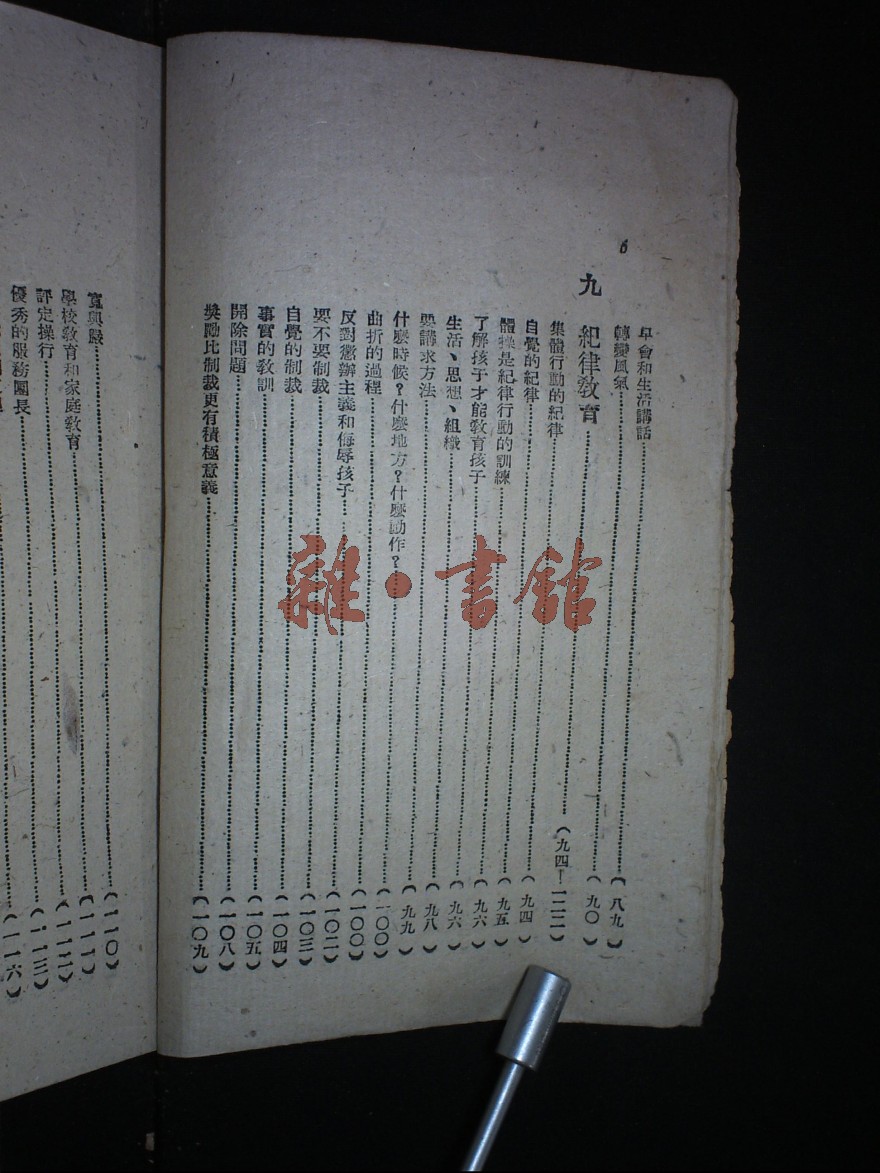 6
早會和生活講話……（八九）
轉變風氣……（九〇）
九　紀律教育……（九四—一二二）
集體行動的紀律……（九四）
自覺的紀律……（九五）
體操是紀律行動的訓練……（九六）
了解孩子才能教育孩子……（九六）
生活、思想、組織……（九八）
要講求方法……（九九）
什麼時候？什麼地方？什麼動作？……（一〇〇）
曲折的過程……（一〇〇）
反對懲辦主義和侮辱孩子……（一〇二）
要不要制裁……（一〇三）
自覺的制裁……（一〇四）
事實的教訓……（一〇五）
開除問題……（一〇八）
獎勵比制裁更有積極意義……（一〇九）
寬與嚴……（一一〇）
學校教育和家庭教育……（一一一）
評定操行……（一一二）
優秀的服務團長……（一一三）
（一一六）
雜·書館